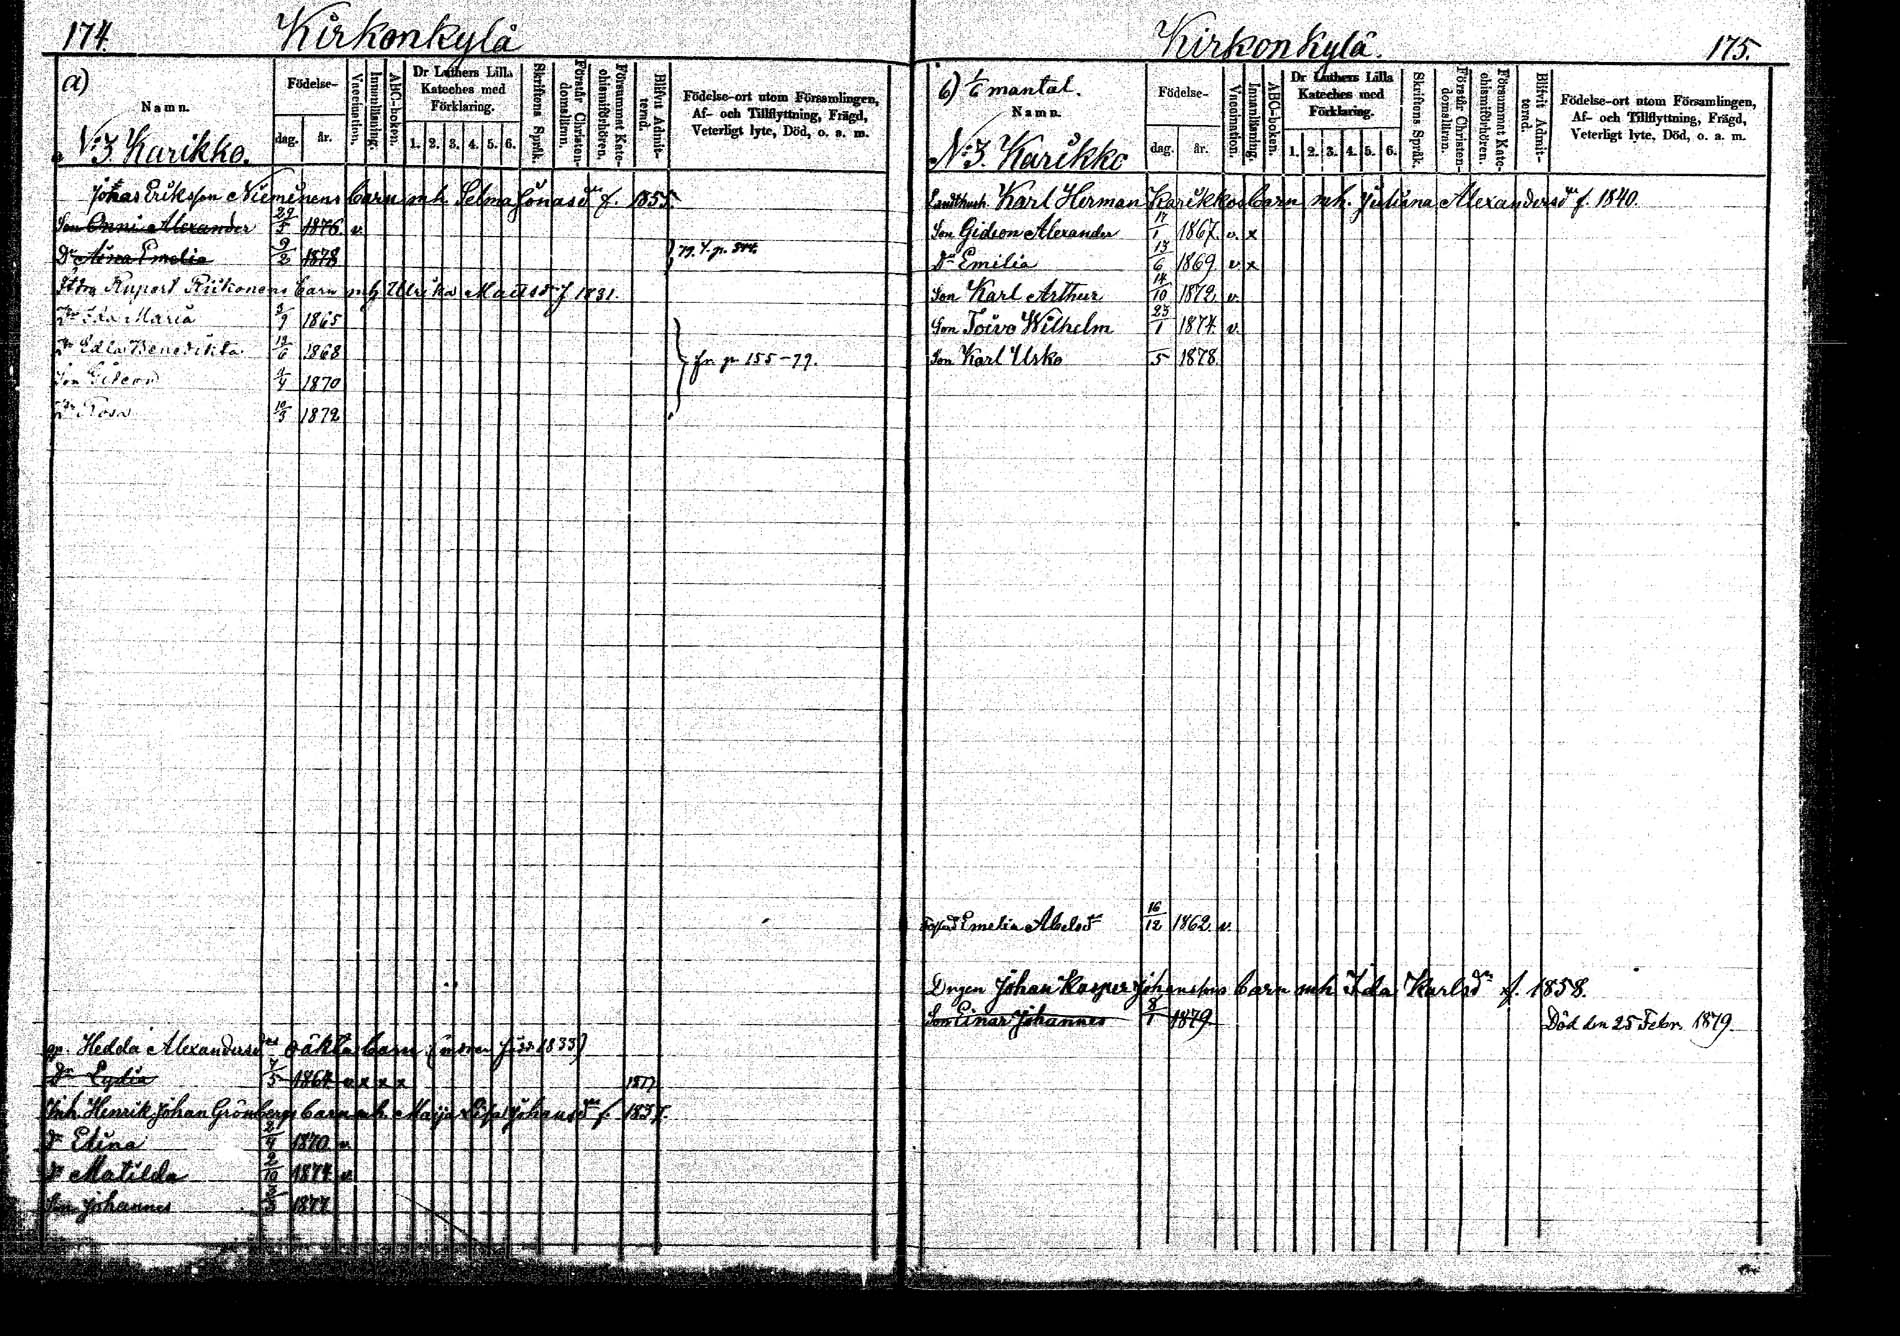 174. Kirkonkylä
a)
Namn.
Födelse-
dag. år.
Vaccination.
Innanläsning.
ABC-boken.
Dr Luthers Lilla
Kateches med
Förklaring.
1. 2. 3. 4. 5. 6.
Skriftens Språk.
Förstår Christen-
domsläran.
Försummat Kate-
chismiförhören.
Blifvit Admit-
terad.
Födelse-ort utom Församlingen,
Af- och Tillflyttning, Frägd,
Veterligt lyte, Död, o. a. m.
N:o 3. Karikko.
Johas Eriksson Nieminens barn mh Selma Jonasdr f. 1855.
Son Onni Alexander 29/5 1876 v.
Dr Aina Emelia 9/2 1878 79. f. p.
Rupert Riikonens barn mh Ulrika Mattsdr f 1831.
Dr Ida Maria 3/9 1865
Dr Edla Benedikta 12/6 1868 fr. p 155-79.
Son Gideon 1/4 1870
Dr Rosa 10/3 1872
gp. Hedda Alexandersdrs oäkta barn (modren född 1833)
Dr Lydia 7/5 1864 v x x x 1877
Inh. Henrik Johan Grönbergs barn mh. Maija Lisa Johansdr f. 1837.
Dr Elina 21/4 1870 v.
Dr Matilda 2/10 1874 v.
Son Johannes 1877
Kirkonkylä. 175.
b) mantal.
Namn.
Födelse-
dag. år.
Vaccination.
Innanläsning.
ABC-boken.
Dr Luthers Lilla
Kateches med
Förklaring.
1. 2. 3. 4. 5. 6.
Skriftens Språk.
Förstår Christen-
domsläran.
Försummat Kate-
chismiförhören.
Blifvit Admit-
terad.
Födelse-ort utom Församlingen,
Af- och Tillflyttning, Frägd,
Veterligt lyte, Död, o. a. m.
N:o 3. Karikko
Landtbruk. Karl Herman Karikkos barn mh. Juliana Alexandersdr f. 1840.
Son Gideon Alexander 17/1 1867. v. x
Dr Emilia 13/6 1869 v x
Son Karl Arthur 14/10 1872 v.
Son Toivo Wilhelm 23/1 1874. v.
Son Karl Usko /5 1878.
Emelia Abelsdr 16/12 1862 v.
Drgen Johan Kasper Johanssons barn mh Ida Karlsdr f. 1858.
Son Einar Johannes 8/1 1879. Död den 25 Febr. 1879